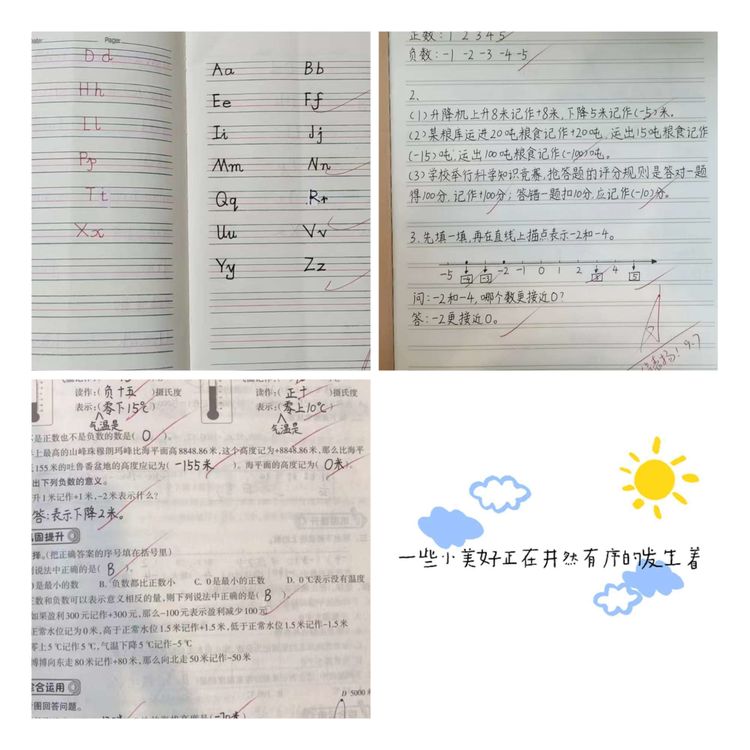 Pager
D d
H h
L l
P p
T t
X x
A a B b
E e F f
I i J j
M m N n
Q q R r
U u V v
Y y Z z
正数: 1 2 3 4 5
负数: -1 -2 -3 -4 -5
2、
(1) 升降机上升8米记作+8米,下降5米记作(-5)米。
(2) 某粮库运进20吨粮食记作+20吨,运出15吨粮食记作
(-15)吨;运出100吨粮食记作(-100)吨。
(3) 学校举行科学知识竞赛,抢答题的评分规则是答对一题
得100分,记作+100分;答错一题扣10分,应记作(-10)分。
3.先填一填,再在直线上描点表示-2和-4。
-5 -4 -3 -2 -1 0 1 2 3 4 5
问:-2和-4,哪个数更接近0?
答:-2更接近0。
9.7
读作:(负十五)摄氏度 读作:(正十)摄氏度
表示:(零下15℃) 表示:(零上10℃)
气温是 气温是
是正数也不是负数的数是( 0 )。
上最高的山峰珠穆朗玛峰比海平面高8848.86米,这个高度记为+8848.86米,那么比海平
155米的吐鲁番盆地的高度应记为( -155米 )。海平面的高度记为( 0米 )。
出下列负数的意义。
升1米记作+1米,-2米表示什么?
答:表示下降2米。
巩固提升
择。(把正确答案的序号填在括号里)
说法中正确的是( B )。
是最小的数 B. 负数都比正数小 C. 0是最小的正数 D. 0℃表示没有温度
正数和负数可以表示意义相反的量,则下列说法中正确的是( B )。
如果盈利300元记作+300元,那么-100元表示盈利减少100元
正常水位记为0米,高于正常水位1.5米记作+1.5米,低于正常水位1.5米记作-1.5米
零上5℃记作5℃,气温下降5℃记作-5℃
博博向东走80米记作+80米,那么向北走50米记作-50米
综合运用
图回答问题。
D 5000米
一些小美好正在井然有序的发生着